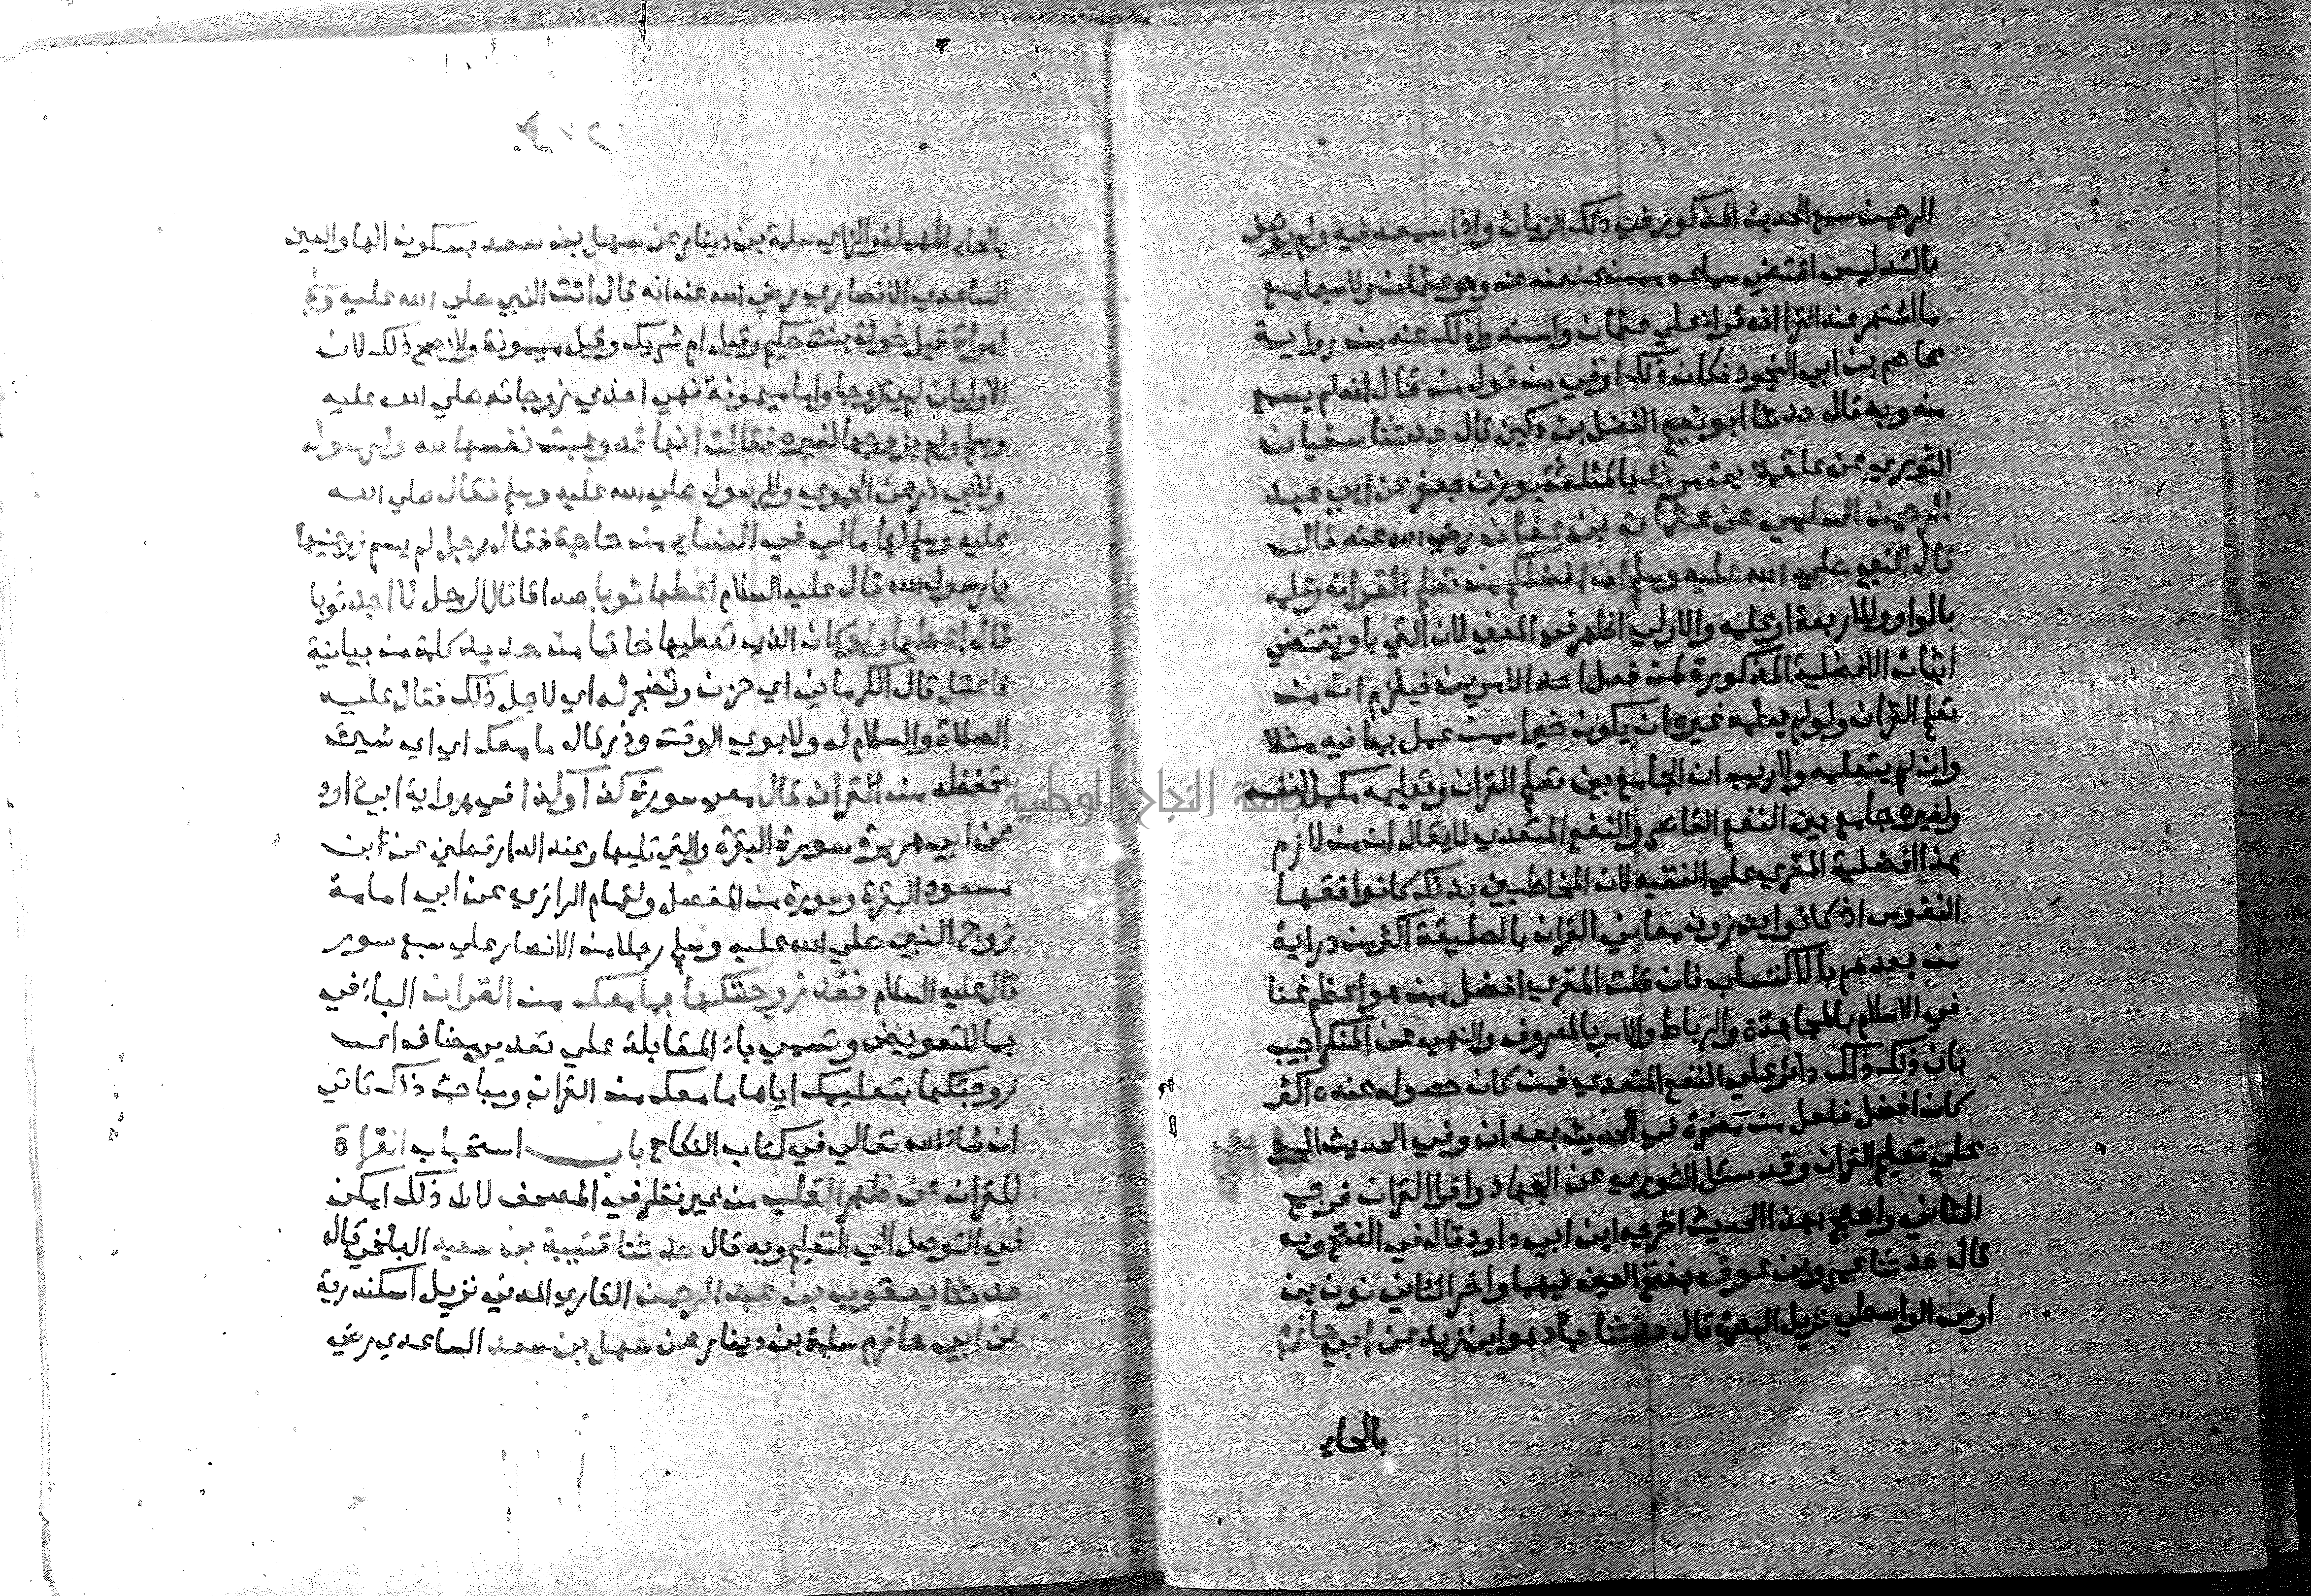 الرحمن سمع الحديث المذكور في ذلك الزمان واذا سمعه فيه ولم يوصف
بالتدليس اقتضي سماعه ممن عنعنه عنه وهو عثمان ولا سيما مع
ما اشتهر عند القرا انه قرا علي عثمان واسندوا ذلك عنه من رواية
عاصم بن ابي النجود فكان ذلك اوفي من قول من قال انه لم يسمع
منه وبه قال حدثنا ابو نعيم الفضل بن دكين قال حدثنا سفيان
الثوري عن علقمة بن مرثد بالمثلثة بوزن جعفر عن ابي عبد
الرحمن السلمي عن عثمان بن عفان رضي الله عنه قال
قال النبي صلي الله عليه وسلم ان افضلكم من تعلم القران وعلمه
بالواو وللاربعة او علمه والاولي اظهر في المعني لان التي باو تقتضي
اثبات الافضلية المذكورة لمن فعل احد الامرين فيلزم ان من
تعلم القران ولو لم يعلمه غيره ان يكون خيرا ممن عمل بما فيه مثلا
وان لم يتعلمه ولا ريب ان الجامع بين تعلم القران وتعليمه مكمل لنفسه
ولغيره جامع بين النفع القاصر والنفع المتعدي لا يقال ان من لازم
هذا افضلية المقري علي الفقيه لان المخاطبين بذلك كانوا فقها
النفوس اذ كانوا يدرون معاني القران بالسليقة اكثر من دراية
من بعدهم بالاكتساب فان قلت المقري افضل ممن هو اعظم غنا
في الاسلام بالمجاهدة والرباط والامر بالمعروف والنهي عن المنكر اجيب
بان ذلك ذلك دائر علي النفع المتعدي فمن كان حصوله عنده اكثر
كان افضل فلعل من مضمرة في الحديث بعد ان وفي الحديث الحث
علي تعليم القران وقد سئل الثوري عن الجهاد واقرا القران فرجح
الثاني واحتج بهذا الحديث اخرجه ابن ابي داود قاله في الفتح وبه
قال حدثنا عمرو بن عون بفتح العين فيهما واخر الثاني نون بن
اوس الواسطي نزيل البصرة قال حدثنا حماد هو ابن زيد عن ابي حازم
بالحاء
بالحاء المهملة والزاي سلمة بن دينار عن سهل بن سعد بسكون الها والعين
الساعدي الانصاري رضي الله عنه انه قال اتت النبي صلي الله عليه وسلم
امراة قيل خولة بنت حكيم وقيل ام شريك وقيل ميمونة ولا يصح ذلك لان
الاوليان لم يتزوجا واما ميمونة فهي احدي زوجاته صلي الله عليه
وسلم ولم يزوجها لغيره فقالت انها قد وهبت نفسها لله ولرسوله
ولابي ذر عن الحموي وللرسول صلي الله عليه وسلم فقال صلي الله
عليه وسلم لها مالي في النساء من حاجة فقال رجل لم يسم زوجنيها
يا رسول الله قال عليه السلام اعطها ثوبا صداقا قال الرجل لا اجد ثوبا
قال اعطها ولو كان الذي تعطيها خاتما من حديد كلمة من بيانية
فاعتل قال الكرماني اي حزن وتضجر له اي لاجل ذلك فقال عليه
الصلاة والسلام له ولابوي الوقت وذر قال ما معك اي اي شيء
تحفظه من القران قال معي سورة كذا وكذا في رواية ابي داود
عن ابي هريرة سورة البقرة والتي تليها وعند الدارقطني عن ابن
مسعود البقرة وسورة من المفصل ولتمام الرازي عن ابي امامة
زوج النبي صلي الله عليه وسلم رجلا من الانصار علي سبع سور
قال عليه السلام فقد زوجتكها بما معك من القران الباء في
بما للتعويض وتسمي باء المقابلة علي تقدير مضاف اي
زوجتكها بتعليمك اياها ما معك من القران ومباحث ذلك تاتي
ان شاء الله تعالي في كتاب النكاح باب استحباب القراة
للقران عن ظهر القلب من غير نظر في المصحف لان ذلك امكن
في التوصل الي التعليم وبه قال حدثنا قتيبة بن سعيد البلخي قال
حدثنا يعقوب بن عبد الرحمن القاري المدني نزيل اسكندرية
عن ابي حازم سلمة بن دينار عن سهل بن سعد الساعدي رضي
جامعة النجاح الوطنية